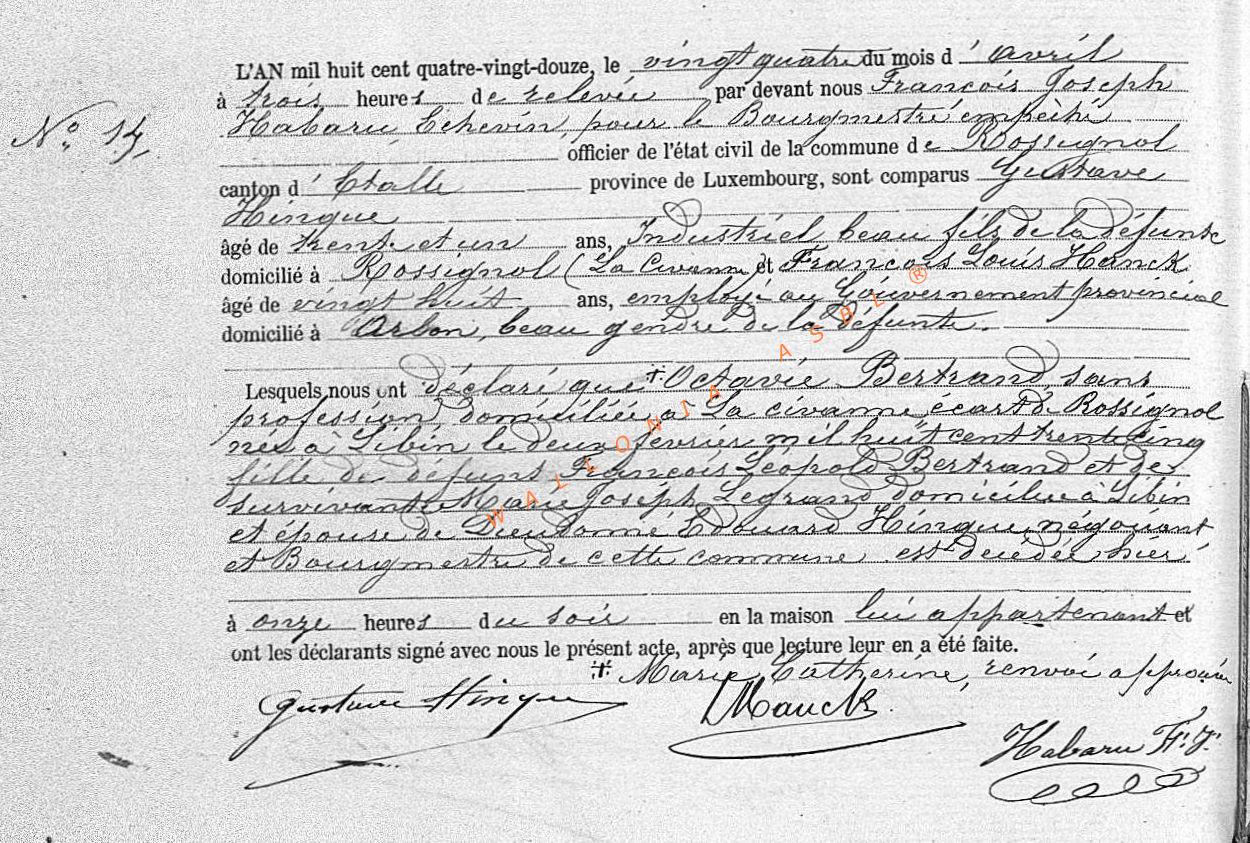 L'AN mil huit cent quatre-vingt-douze, le vingt quatre du mois d' avril
à trois heures de relevée par devant nous François Joseph
Nº 14,
Habaru Echevin, pour le Bourgmestre empêché
officier de l'état civil de la commune de Rossignol
canton d' Etalle province de Luxembourg, sont comparus Gustave
Hinque
âgé de trente et un ans, Industriel beau fils de la défunte
domicilié à Rossignol (La Civanne) et François Louis Hanck
âgé de vingt huit ans, employé au Gouvernement provincial
domicilié à Arlon, beau gendre de la défunte.
Lesquels nous ont déclaré que + Octavie Bertrand, sans
profession domiciliée à La civanne écart de Rossignol
née à Libin le deux février mil huit cent trente cinq
fille de défunt François Léopold Bertrand et de
survivante Marie Joseph Legrand domiciliée à Libin
et épouse de Dieudonné Edouard Hinque négociant
et Bourgmestre de cette commune est décédée hier
à onze heures du soir en la maison lui appartenant et
ont les déclarants signé avec nous le présent acte, après que lecture leur en a été faite.
+ Marie Catherine, renvoi approuvé
Gustave Hinque
LHanck
Habaru F. J.
WALLONIA ASBL ®